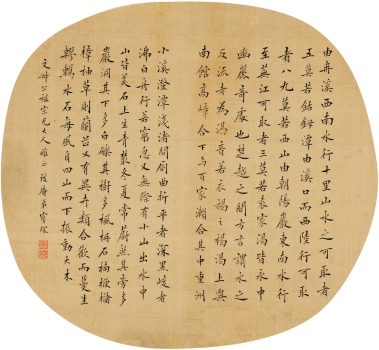 由冉溪西南水行十里山水之可取者
五莫若鈷鉧潭由溪口而西陸行可取
者八九莫若西山由朝陽巖東南水行
至蕪江可取者三莫若袁家渴皆永中
幽麗奇處也楚越之間方言謂水之
反流者為渴音若衣褐之褐渴上與
南館高嶂合下與百家瀨合其中重洲
小溪澄潭淺渚間廁曲折平者深黑峻者
沸白舟行若窮忽又無際有小山出水中
山皆美石上生青叢冬夏常蔚然其旁多
巖洞其下多白礫其樹多楓柟石楠楩櫧
樟柚草則蘭芷又有異卉類合歡而蔓生
轇轕水石每風自四山而下振動大木
文卿公祖宗兄大人雅正 弟寶琛